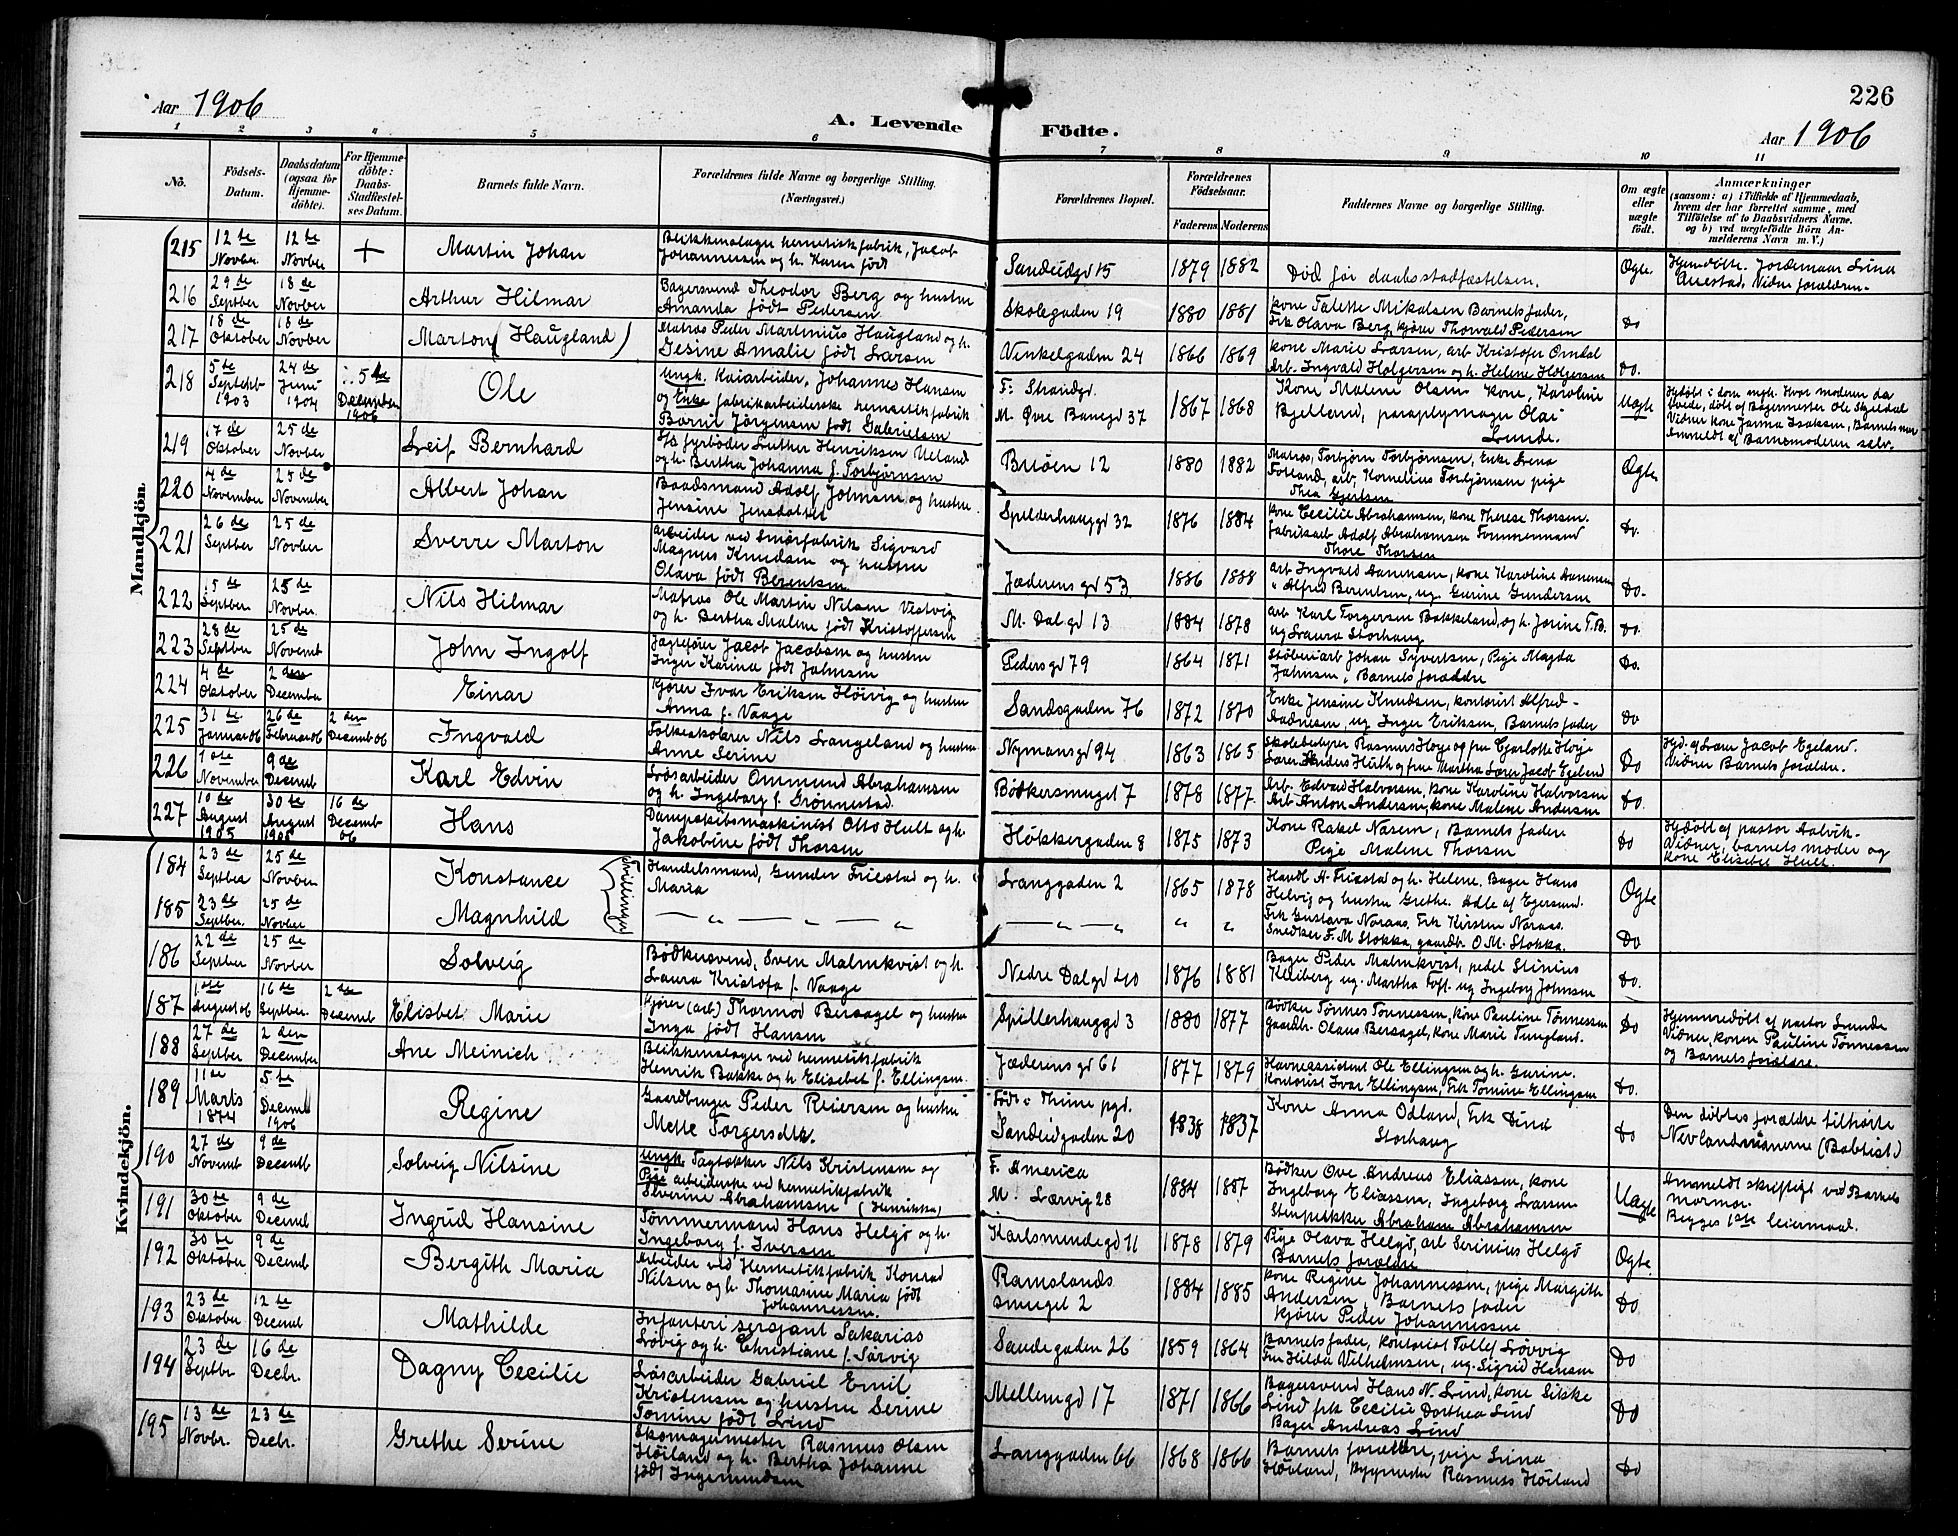 Aar 1906
A. Levende Födte.
226
Aar 1906
1 2 3 4 5 6 7 8 9 10 11
No. Födsels-Datum. Daabsdatum (ogsaa for Hjemme-döbte). For Hjemme-döbte: Daabs-Stadfæstel-ses Datum. Barnets fulde Navn. Forældrenes fulde Navne og borgerlige Stilling. (Næringsvei.) Forældrenes Bopæl. Forældrenes Födselsaar. Faderens Moderens Faddernes Navne og borgerlige Stilling. Om ægte eller uægte födt. Anmærkninger (saasom: a) i Tilfælde af Hjemmedaab, hvem der har forrettet samme, med Tilföielse af to Daabsvidners Navne. og b) ved uægtefödte Börn An-melderens Navn m. V.)
Mandkjön.
215 12te Novber. 12te Novber + Martin Johan Blikkenslager hermetikfabrik, Jacob Johannessen og h. Karen födt Sandeidgd 15 1879 1882 Död för daabsstadfæstelsen. Ægte. Hjemdöbte. Jordemoder Lina Auestad. Vidner forældren.
216 29de Septber 18de Novber Arthur Hilmar Bagersvend Theodor Berg og hustru Amanda födt Pedersen Skolegaden 19 1880 1881 Kone Talette Mikalsen Barnets fader, Frk Olava Berg, kjörer Thorvald Pedersen Do
217 18de Oktober 18de Novber Marton (Haugland) Matros Peder Martinius Haugland og h. Gesine Amalie födt Larsen Vinkelgaden 24 1866 1869 Kone Marie Larsen, arb Kristofer Omdal Arb. Ingvald Holgersen og h. Helene Holgersen Do.
218 5te Septebr 1903 24de Juni 1904 5te December 1906 Ole Ungk. Kaiarbeider, Johannes Hansen og Enke fabrikarbeiderske hermetikfabrik Borril Jörgensen födt Gabrielsen F: Strandgd. M. Övre Banegd 37 1867 1868 Kone Malene Olsen Kone, Karoline Bjelland, paraplymager Olai Lunde. Uægte Vidner kone Janna Isaksen, Barnets mor Anmeldt af Barnemoderen selv.
219 17de Oktober 25de Novber Leif Bernhard S/s fyrböder Luther Henriksen Ueland og h. Bertha Johanna f. Torbjörnsen Bröen 12 1880 1882 Matros, Torbjörn Torbjörnsen, Enke Lena Folland, arb, Kornelius Torbjörnsen pige Thea Gjertsen Ægte
220 4de November 25de November Albert Johan Baadsmand Adolf Johnsen og hustru Jensine Jensdatter Spilderhauggd 32 1876 1884 Kone Cecilie Abrahamsen, kone Therese Thorsen. fabrikarb Adolf Abrahamsen Tömmermand Thore Thorsen Do.
221 26de Septber 25de Novber. Sverre Marton arbeider ved Smörfabrik Sigvard Magnus Knudsen og hustru Olava födt Berentsen Jæderens gd 53 1886 1888 arb Ingvald Aanensen, kone Karoline Aanensen " Alfred Berentsen, ug. Gurine Gundersen Do.
222 15de Septber 25de Novber. Nils Hilmar Matros Ole Martin Nilsen Vestvig og h. Bertha Malene födt Kristoffersen M. Dalgd 13 1884 1878 arb Karl Torgersen Bakkeland, og h. Josine T. B. ug Laura Storhaug Do.
223 28de Septber 25de Novemb John Ingolf Jagtefører Jacob Jacobsen og hustru Inger Karina födt Jahnsen Pedersgd 79 1864 1871 Stöberiarb Johan Syvertsen, Pige Magda Jahnsen, Barnets forældre Do.
224 4de Oktober 2den December Einar Kjörer Ivar Eriksen Höivig og hustru Anna f. Vaage Sandsgaden 76 1872 1870 Enke Jensine Knudsen, kontorist Alfred Aadnesen, ug Inger Eriksen, Barnets fader Do
225 31te Januar 06 26de Februar 06 2den Decemb 06 Ingvald Folkeskolelærer Nils Langeland og hustru Anne Serine Nymansgd 94 1863 1865 Skolebestyrer Rasmus Höye og fru Charlotte Höye Lærer Anders Huth og frue Martha Lærer Jacob Egeland Do Hjd. af Lærer Jacob Egeland. Vidner Barnets forældre.
226 1ste November 9de Decemb Karl Edvin Lösarbeider Ommund Abrahamsen og h. Ingeborg f. Grönnestad. Bödkersmuget 7 1878 1877 Arb. Edvard Halvorsen, kone Karoline Halvorsen Arb Anton Andersen, kone Malene Andersen Do.
227 10de August 1905 30te August 1905 16de Decemb 06 Hans Dampskibsmaskinist Otto Hult og h. Jakobine födt Thorsen Hökkergaden 8 1875 1873 Kone Rakel Næsen, Barnets fadere Pige Malene Thorsen Do Hjdöbt af pastor Aalvik. Vidner, barnets moder og kone Elisebet Hult.
Kvindekjön.
184 23de Septber 25de Novber Konstance Tvillinger Handelsmand, Gunder Friestad og h. Maria Langgaden 2 1865 1878 Handl A. Friestad og h. Helene. Bager Hans Helvig og hustru Grethe. Alle af Egersund. Ægte
185 23de Septber. 25de Novber Magnhild — " — " — — " — " " Frk Gustava Noraas. Frk Kirsten Noraas. Snedker F. M Stokka, gaardb. O M. Stokka. Do
186 22de Septber 25de Novber Solveig Bödkersvend, Sven Malmkvist og h. Laura Kristofa f. Vaage Nedre Dalgd 40 1876 1881 Bager Peder Malmkvist, pedel Stinius Kleiberg ug. Martha Toft. ug Ingeborg Johnsen Do.
187 1ste August 06 16de Septber. 2den Decemb Elisbet Marie Kjörer (arb) Thormod Bersagel og hustru Inga födt Hansen Spilderhauggd 3 1880 1877 Bödker Tönnes Tönnessen, kone Pauline Tönnessen Gaardbr. Olaus Bersagel, kone Marie Tungland. Do Hjemmedöbt af pastor Lunde Vidner, konen Pauline Tönnessen og Barnets forældre.
188 27de Septber 2den December Ane Meinich Blikkenslager ved hermetikfabrik Henrik Bakke og h. Elisebet f. Ellingsen. Jæderens gd 61 1877 1879 Havneassistent Ole Ellingsen og h. Gurine. Kontorist Ivar Ellingsen, Frk Tomine Ellingsen Do.
189 11te Marts 1874 5te Decemb 1906 Regine Gaardbruger Peder Reiersen og hustru Mette Torgersdtr. Födt i Thime pgd. Sandeidgaden 20 1838 1837 Kone Anna Odland, Frk Dina Storhaug Do Den döbtes forældre tilhörte Nevlandvianerne (Babtist)
190 27de Novemb 9de Decemb Solveig Nilsine Ungk. Tagtækker Nils Kristensen og Pige arbeiderske ved hermetikfabrik Severine Abrahamsen (Henrikka) F. America M. Lærvig 28 1884 1887 Bödker Ove Andreas Eliassen, kone Ingeborg Eliassen, Ingeborg Larsen Stenpikker Abraham Abrahamsen Uægte Anmeldt skriftligt ved Barnets mormor. Begges 1ste leiermaal.
191 30te Oktober 9de Decemb Ingrid Hansine Tömmermand Hans Helgö og h. Ingeborg f. Iversen Karlsmindegd 11 1878 1879 Pige Olava Helgö, arb Serinius Helgö Barnets forældre Ægte
192 30te Oktober 9de Decemb Bergith Maria Arbeider ved Hermetikfabrik Konrad Nilsen og h. Thomasine Maria födt Johannessen. Ramslands smuget 2 1884 1885 Kone Regine Johannessen, pige Margith Andersen, Barnets fader Kjörer Peder Johannessen Do
193 23de Oktober 12te Decemb Mathilde Infanteri sersjant Sakarias Lövig og h. Christiane f. Sörvig Sandegaden 26 1859 1864 Barnets fader, kontorist Tollef Lövvig Fru Hilda Vilhelmsen, ug. Sigrid Hansen Do
194 23de Septbr 16de Decbr. Dagny Cecilie Lösarbeider Gabriel Emil Kristensen og hustru Serine Tomine födt Lind Mellemgd 17 1871 1866 Bagersvend Hans N. Lind, kone Sikke Lind frk Cecilie Dorthea Lind Bager Andreas Lind Do
195 13de Novbr. 23de Decbr. Grethe Serine Skomagermester Rasmus Olsen Höiland og h. Bertha Johanne födt Ingemundsen Langgaden 66 1868 1866 Barnets forældre, pige Lina Höiland, Bygmester Rasmus Höiland Do